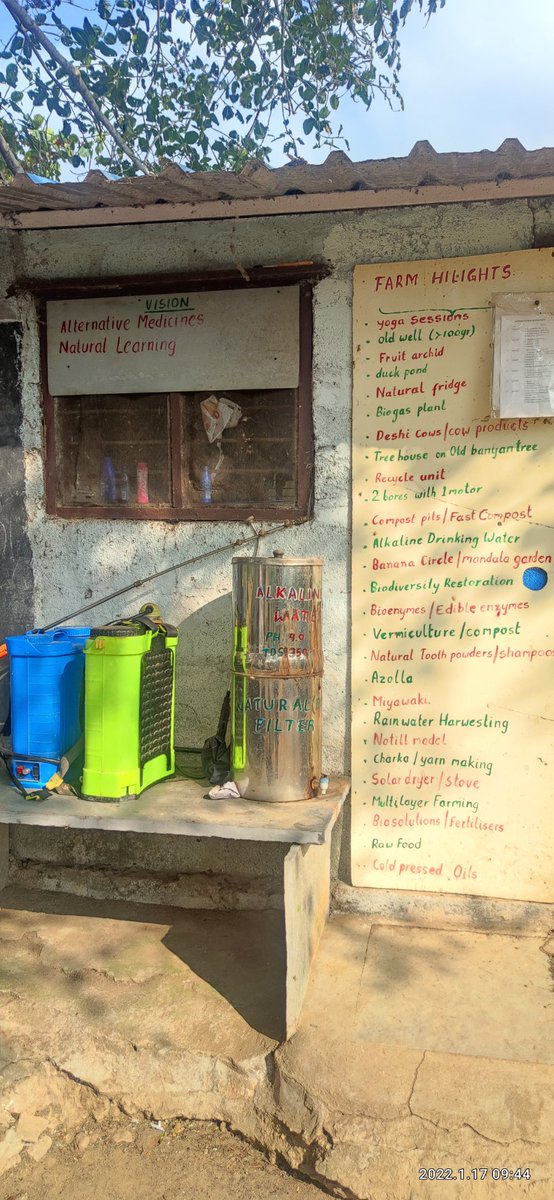 VISION
Alternative Medicines
Natural Learning
FARM HILIGHTS
yoga Sessions
old well (>100yr)
Fruit archid
duck pond
Natural fridge
Biogas plant
Deshi Cows/cow products
Tree house on Old banyan tree
Recycle unit
2 bores with 1 motor
Compost pits/Fast Compost
Alkaline Drinking Water
Banana Circle/mandala garden
Biodiversity Restoration
Bioenymes/Edible enzymes
Vermiculture/compost
Natural Tooth powders/shampoos
Azolla
Miyawaki
Rainwater Harwesting
Notill model
charka/yarn making
Solar dryer/stove
Multilayer Farming
Biosolutions/Fertilisers
Raw Food
Cold pressed Oils
ALKALIN
WATE
PH 9.0
TDS 350
NATURAL
BILTER
2022.1.17 09:44